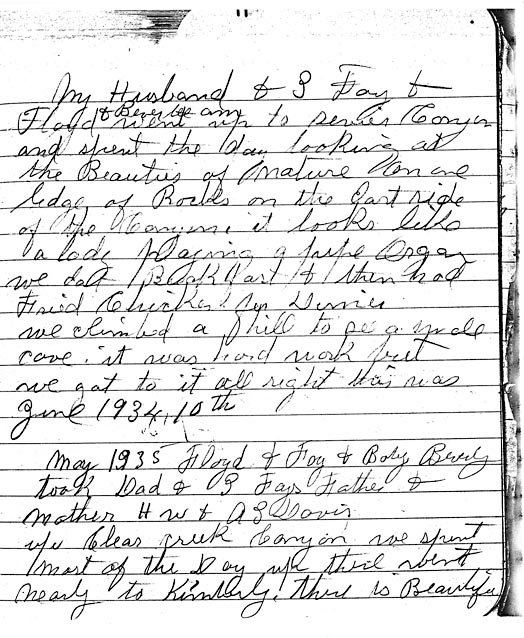 My Husband & I Fay &
& Beverley Ann
Floyd went up to Sevier Canyon
and spent the day looking at
the Beauties of Mature on one
ledge of Rocks on the East side
of the Canyon; it looks like
a lady playing a pipe Organ
we dat Bank dart & then had
Fried Chicken for Dinner
we climbed a hill to se a
cave. it was hard work but
we got to it all right this was
June 1934, 10th
May 1935 Floyd & Fay & Baby Beverly
took Dad & I Fays Father &
mother H W & A J Davis
up Clear creek Canyon we spent
most of the Day up there went
nearly to Kimberly. there is Beautiful